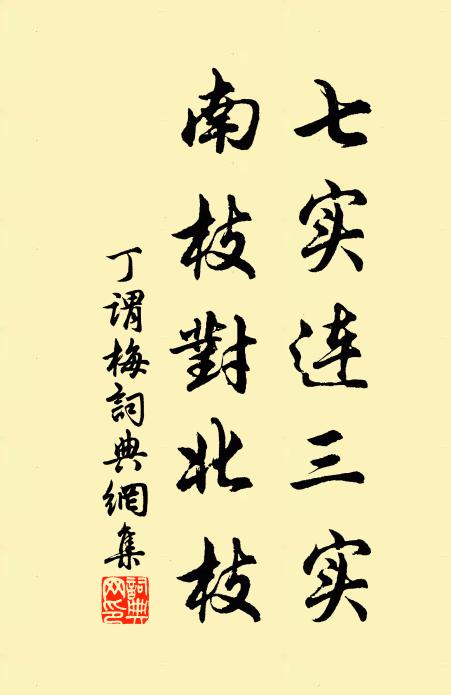 七实连三实
南枝對北枝
丁谓梅詞典網集
詞典网印